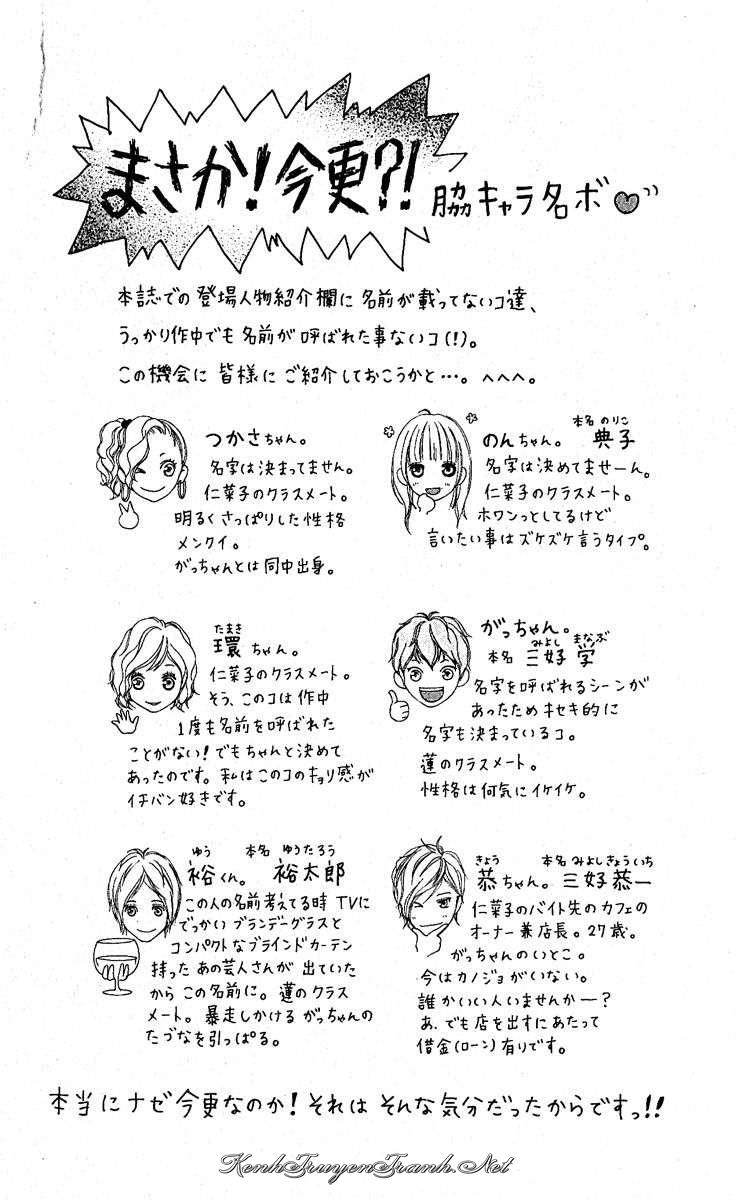 まさか!今更?! 脇キャラ名ボ♥
本誌での登場人物紹介欄に名前が載ってないコ達、
うっかり作中でも名前が呼ばれた事ないコ(!)。
この機会に皆様にご紹介しておこうかと…。へへへ。
つかさちゃん。
名字は決まってません。
仁菜子のクラスメート。
明るくさっぱりした性格
メンクイ。
がっちゃんとは同中出身。
本名 のりこ
のんちゃん。 典子
名字は決めてませーん。
仁菜子のクラスメート。
ホワンっとしてるけど
言いたい事はズケズケ言うタイプ。
たまき
環ちゃん。
仁菜子のクラスメート。
そう、このコは作中
1度も名前を呼ばれた
ことがない!でもちゃんと決めて
あったのです。私はこのコのキョリ感が
イチバン好きです。
がっちゃん。
みよし まなぶ
本名 三好 学
名字を呼ばれるシーンが
あったためキセキ的に
名字も決まっているコ。
蓮のクラスメート。
性格は何気にイケイケ。
ゆう 本名 ゆうたろう
裕くん。 裕太郎
この人の名前考えてる時TVに
でっかいブランデーグラスと
コンパクトなブラインドカーテン
持ったあの芸人さんが出ていた
からこの名前に。蓮のクラス
メート。暴走しかけるがっちゃんの
たづなを引っぱる。
きょう 本名 みよしきょういち
恭ちゃん。三好恭一
仁菜子のバイト先のカフェの
オーナー兼店長。27歳。
がっちゃんのいとこ。
今はカノジョがいない。
誰かいい人いませんかー?
あ、でも店を出すにあたって
借金(ローン)有りです。
本当にナゼ今更なのか!それはそんな気分だったからですっ!!
KenhTruyenTranh.Net